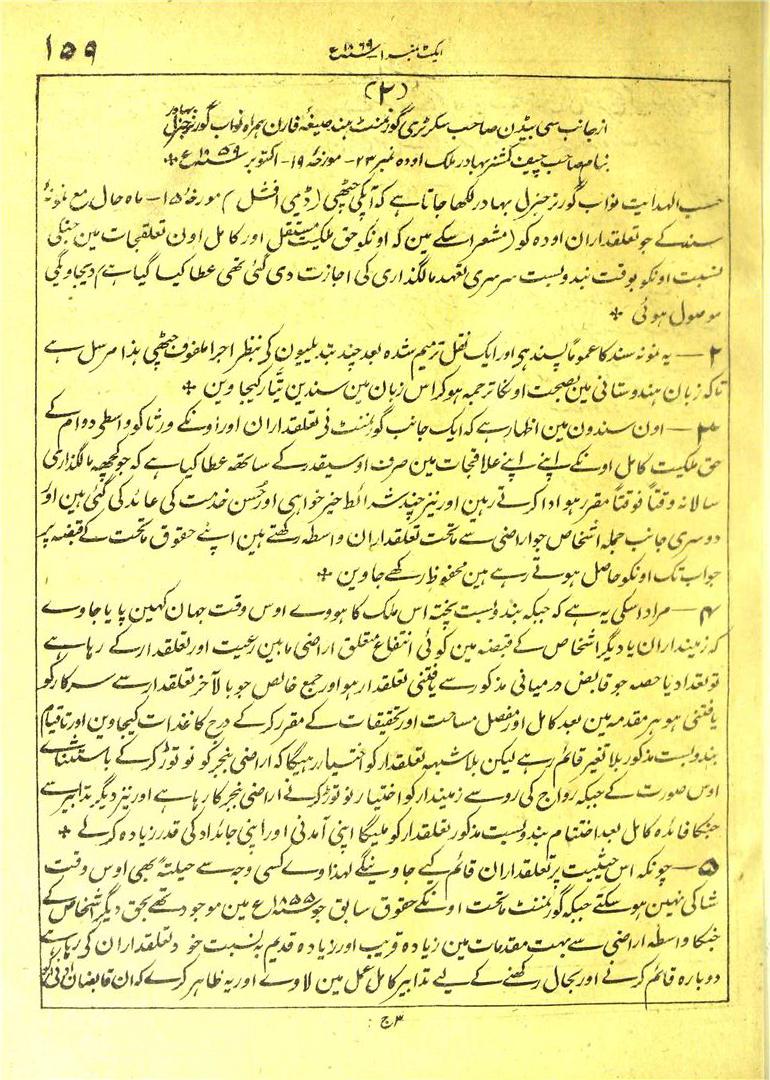 ایکٹ نمبر ۱ سنہ ۱۸۶۹ ع
۱۵۹
(۲)
از جانب سی بیڈن صاحب سکرٹری گورنمنٹ ہند صیغہٴ فارن ہمراہ نواب گورنر جنرل بہادر
بنام صاحب چیف کمشنر بہادر ملک اودہ نمبر ۲۳ - مورخہٴ ۱۹ - اکتوبر سنہ ۱۸۵۹ ع +
حسب الہدایت نواب گورنر جنرل بہادر لکھا جاتا ہے کہ آپکی چٹھی (ڈیمی افشل) مورخہٴ ۱۵ - ماہ حال مع نمونہٴ
سند کے جو تعلقداران اودہ کو (مشعر اسکے مین کہ اونکو حق ملکیت مستقل اور کامل اون تعلقجات مین جنکی
نسبت اونکو بوقت بندوبست سرسری تعہد مالگذاری کی اجازت دی گئی تھی عطا کیا گیا ہے) دیجاویگی
موصول ہوئی +
۲ — یہ نمونہ سند کا عموماً پسند ہی اور ایک نقل ترمیم شدہ بعد چند تبدیلیون کی بنظر اجرا ملفوف چٹھی ہذا مرسل ہے
تاکہ زبان ہندوستانی مین بصحت اونکا ترجمہ ہوکر اس زبان مین سندین تیار کیجاوین +
۳ — اون سندون مین اظہار ہے کہ ایک جانب گورنمنٹ نی تعلقداران اور اونکے ورثا کو واسطی دوام کے
حق ملکیت کامل اونکے اپنے اپنے علاقجات مین صرف اوسیقدر کے ساتھہ عطا کیا ہے کہ جو کچھہ مالگذاری
سالانہ وقتاً فوقتاً مقرر ہو ادا کرتے رہین اور نیز چند شرائط خیر خواہی اور حُسن خدمت کی عائد کی گئی ہین اور
دوسری جانب جملہ اشخاص جو اراضی سے ماتحت تعلقداران واسطہ رکھتے ہین اپنے حقوق ماتحت کے قبضہ پر
جو اب تک اونکو حاصل ہوتے رہے ہین محفوظ رکھے جاوین +
۴ — مراد اسکی یہ ہے کہ جبکہ بندوبست پختہ اس ملک کا ہووے اوس وقت جہان کہین پایا جاوے
کہ زمینداران یا دیگر اشخاص کے قبضہ مین کوئی انتفاع متعلق اراضی مابین رعیت اور تعلقدار کے رہا ہے
تو تعداد یا حصہ جو قابض درمیانی مذکور سے یافتنی تعلقدار ہو اور جمع خالص جو بالآخر تعلقدار سے سرکار کو
یافتنی ہو ہر مقدمہ مین بعد کامل اور مفصل مساحت اور تحقیقات کے مقرر کرکے درج کاغذات کیجاوین اور تا قیام
بندوبست مذکور بلا تغیر قائم رہے لیکن بلا شبہہ تعلقدار کو اختیار رہیگا کہ اراضی بنجر کو نو توڑ کرکے باستثنائے
اوس صورت کے جبکہ رواج کی روسے زمیندار کو اختیار نوتوڑ کرنے اراضی بنجر کا رہا ہے اور نیز دیگر تدابیر سے
جنکا فائدہ کامل بعد اختتام بندوبست مذکور تعلقدار کو ملیگا اپنی آمدنی اور اپنی جائداد کی قدر زیادہ کرلے +
۵ — چونکہ اس حیثیت پر تعلقداران قائم کیے جاوینگے لہذا وے کسی وجہ سے حیلتہً بھی اوس وقت
شاکی نہین ہو سکتے جبکہ گورنمنٹ ماتحت اونکے حقوق سابق جو سنہ ۱۸۵۵ ع مین موجود تھے بحق دیگر اشخاص کے
جنکا واسطہ اراضی سے بہت مقدمات مین زیادہ قریب اور زیادہ قدیم بہ نسبت خود تعلقداران کی رہا ہے
دوبارہ قائم کرنے اور بحال رکھنے کے لیے تدابیر کامل عمل مین لاوے اور یہ ظاہر کرے کہ ان قابضان
۳ج